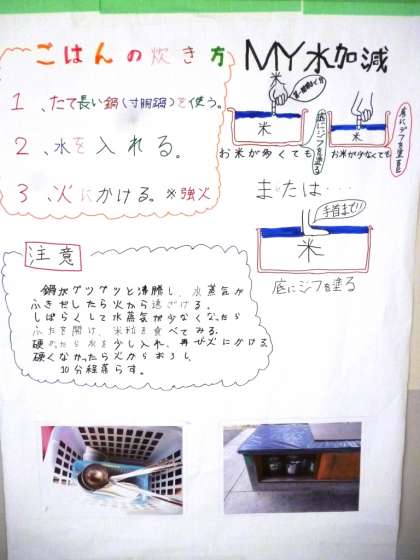 ごはんの炊き方
1、たて長い鍋(寸胴鍋)を使う。
2、水を入れる。
3、火にかける。※強火
MY水加減
米
第一関節まで!!
米
底にジフを塗る
お米が多くても
米
底にジフを塗る
お米が少なくても
または…
手首まで!!
米
底にジフを塗る
注意
鍋がグツグツと沸騰し、水蒸気が
ふきだしたら火から遠ざける。
しばらくして水蒸気が少なくなったら
ふたを開け、米粒を食べてみる。
硬かったら水を少し入れ、再び火にかける。
硬くなかったら火からおろし、
10分程蒸らす。